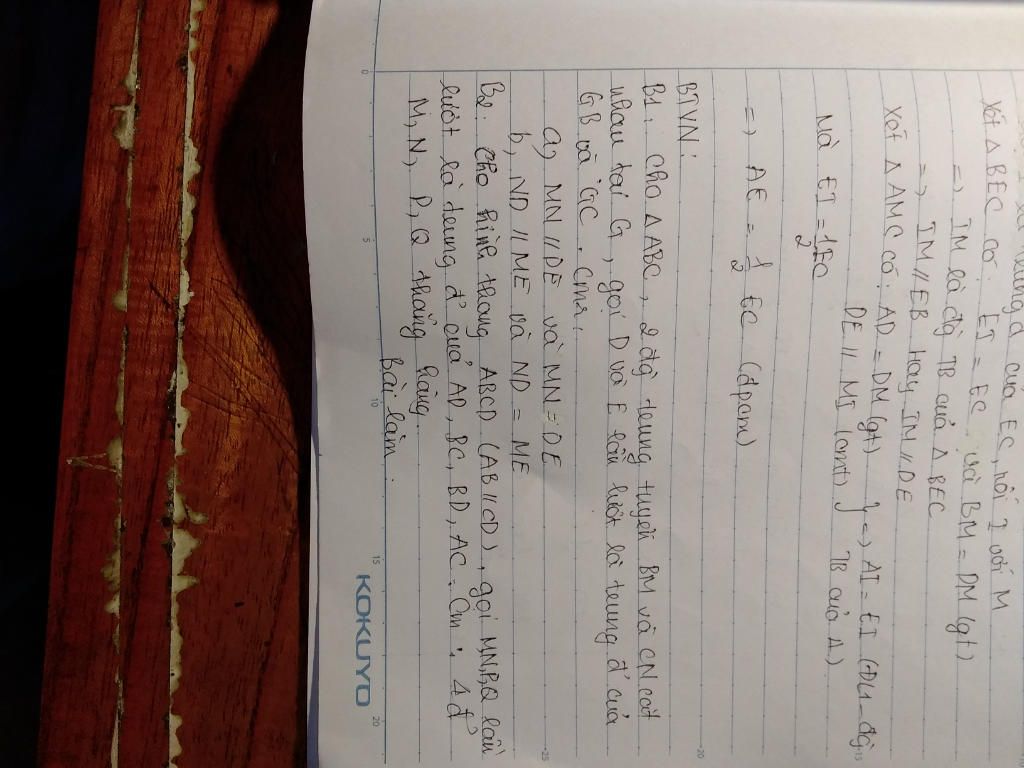 của EC, nối I với M
Xét Δ BEC có: EI = EC và BM = DM (gt)
=> IM là đg TB của Δ BEC
=> IM // EB hay IM // DE
Xét Δ AMC có: AD = DM (gt) } => AI = EI (ĐL1 - đg
DE // MI (cmt) } TB của Δ)
Mà EI = 1/2 EC
=> AE = 1/2 EC (đpcm)
BTVN:
B1. Cho Δ ABC, 2 đg trung tuyến BM và CN cắt
nhau tại G, gọi D và E lần lượt là trung đ' của
GB và GC. Cmr:
a, MN // DE và MN = DE
b, ND // ME và ND = ME
B2. Cho hình thang ABCD (AB // CD), gọi M,N,P,Q lần
lượt là trung đ' của AD, BC, BD, AC. Cm: 4 đ'
M, N, P, Q thẳng hàng.
Bài làm.
0 5 10 15 20
KOKUYO
15
20
25